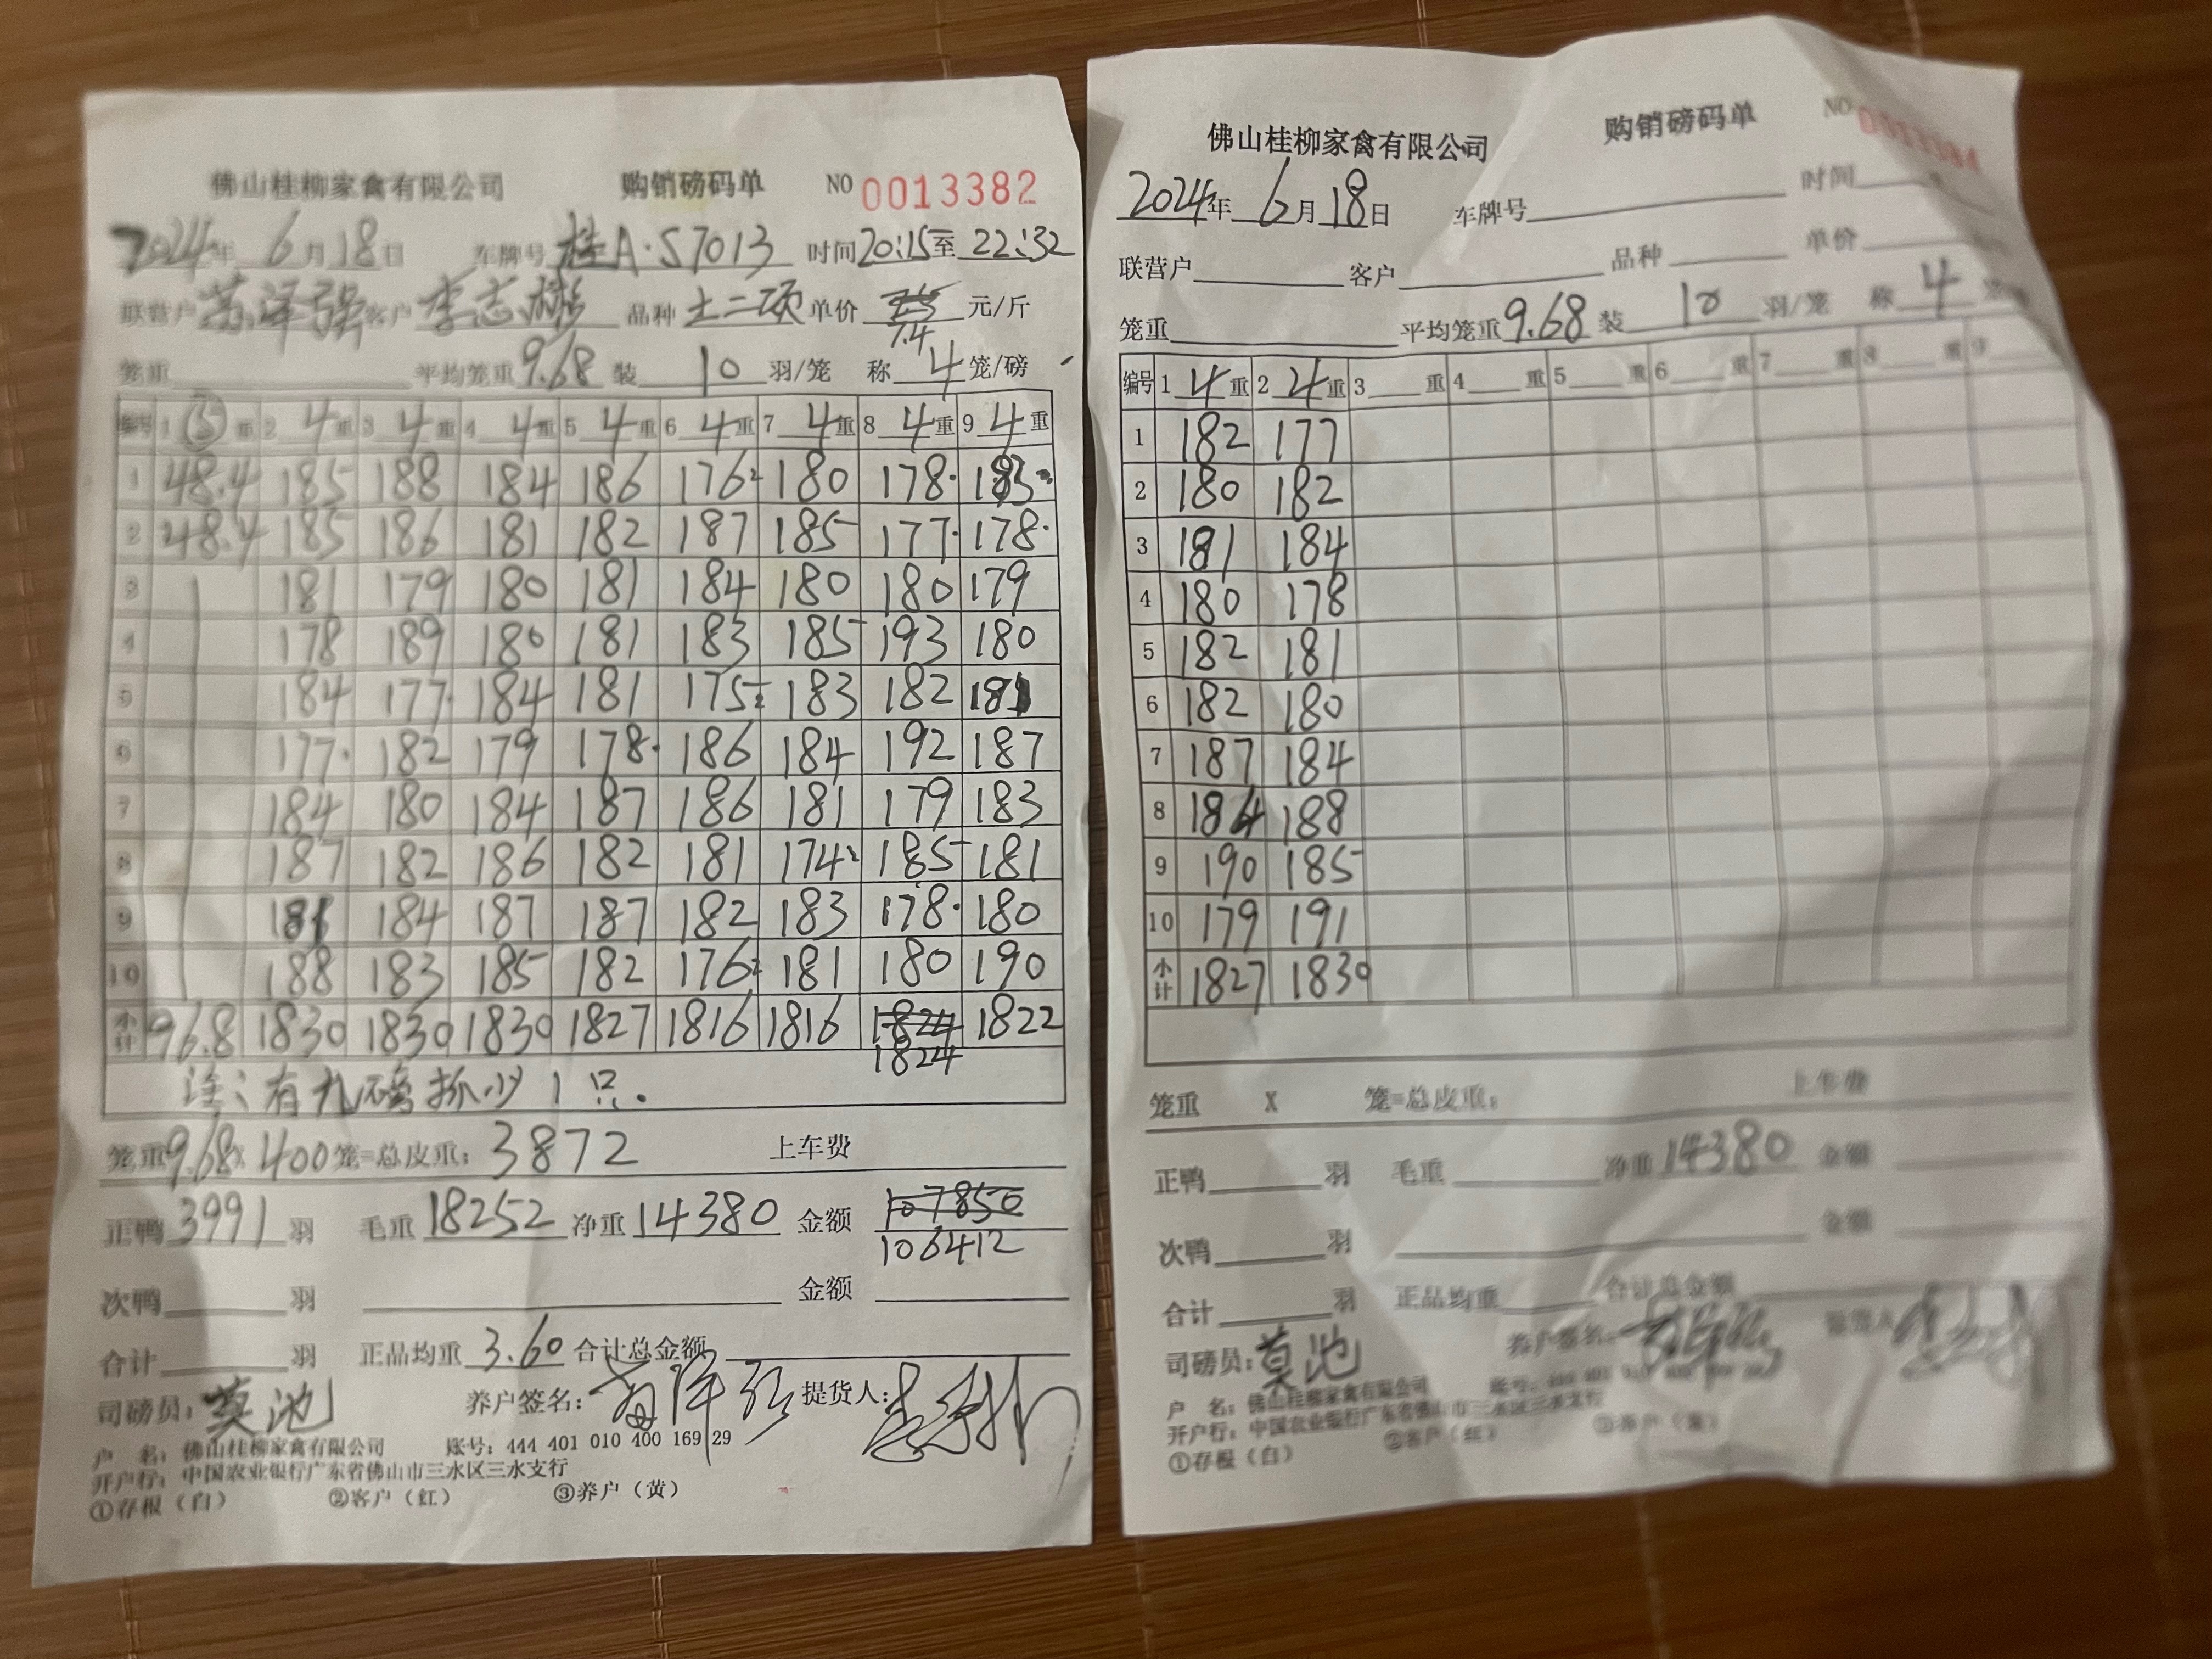 佛山桂柳家禽有限公司 购销磅码单 NO 0013382
2024年 6月18日 车牌号 桂A·S7013 时间20:15至22:32
联营户 客户 李志彬 品种 土二项 单价 7.5 7.4 元/斤
笼重 平均笼重9.68 装 10 羽/笼 称 4 笼/磅
编号 1 (5) 重 2 4 重 3 4 重 4 4 重 5 4 重 6 4 重 7 4 重 8 4 重 9 4 重
1 48.4 185 188 184 186 176: 180 178· 183·
2 48.4 185 186 181 182 187 185 177· 178·
3 181 179 180 181 184 180 180 179
4 178 189 180 181 183 185 193 180
5 184 177· 184 181 175: 183 182 181
6 177· 182 179 178· 186 184 192 187
7 184 180 184 187 186 181 179 183
8 187 182 186 182 181 174: 185 181
9 181 184 187 187 182 183 178· 180
10 188 183 185 182 176: 181 180 190
小计 96.8 1830 1830 1830 1827 1816 1816 1824 1822
1824
注:有九磅抓少1只.
笼重9.68X 400笼=总皮重: 3872 上车费
正鸭 3991 羽 毛重 18252 净重 14380 金额 107850
106412
次鸭 羽 金额
合计 羽 正品均重 3.60 合计总金额
司磅员: 莫池 养户签名: 提货人:
户 名: 佛山桂柳家禽有限公司 账号: 444 401 010 400 169 29
开户行: 中国农业银行广东省佛山市三水区三水支行
①存根(白) ②客户(红) ③养户(黄)
佛山桂柳家禽有限公司 购销磅码单 NO
2024年 6月18日 车牌号 时间
联营户 客户 品种 单价
笼重 平均笼重9.68 装 10 羽/笼 称 4
编号 1 4 重 2 4 重 3 重 4 重 5 重 6 重 7 重 8 重 9
1 182 177
2 180 182
3 181 184
4 180 178
5 182 181
6 182 180
7 187 184
8 184 188
9 190 185
10 179 191
小计 1827 1830
笼重 X 笼=总皮重: 上车费
正鸭 羽 毛重 净重 14380 金额
次鸭 羽 金额
合计 羽 正品均重 合计总金额
司磅员: 莫池 养户签名: 提货人
户 名: 佛山桂柳家禽有限公司 账号:
开户行: 中国农业银行广东省佛山市三水区三水支行
①存根(白) ②客户(红) ③养户(黄)